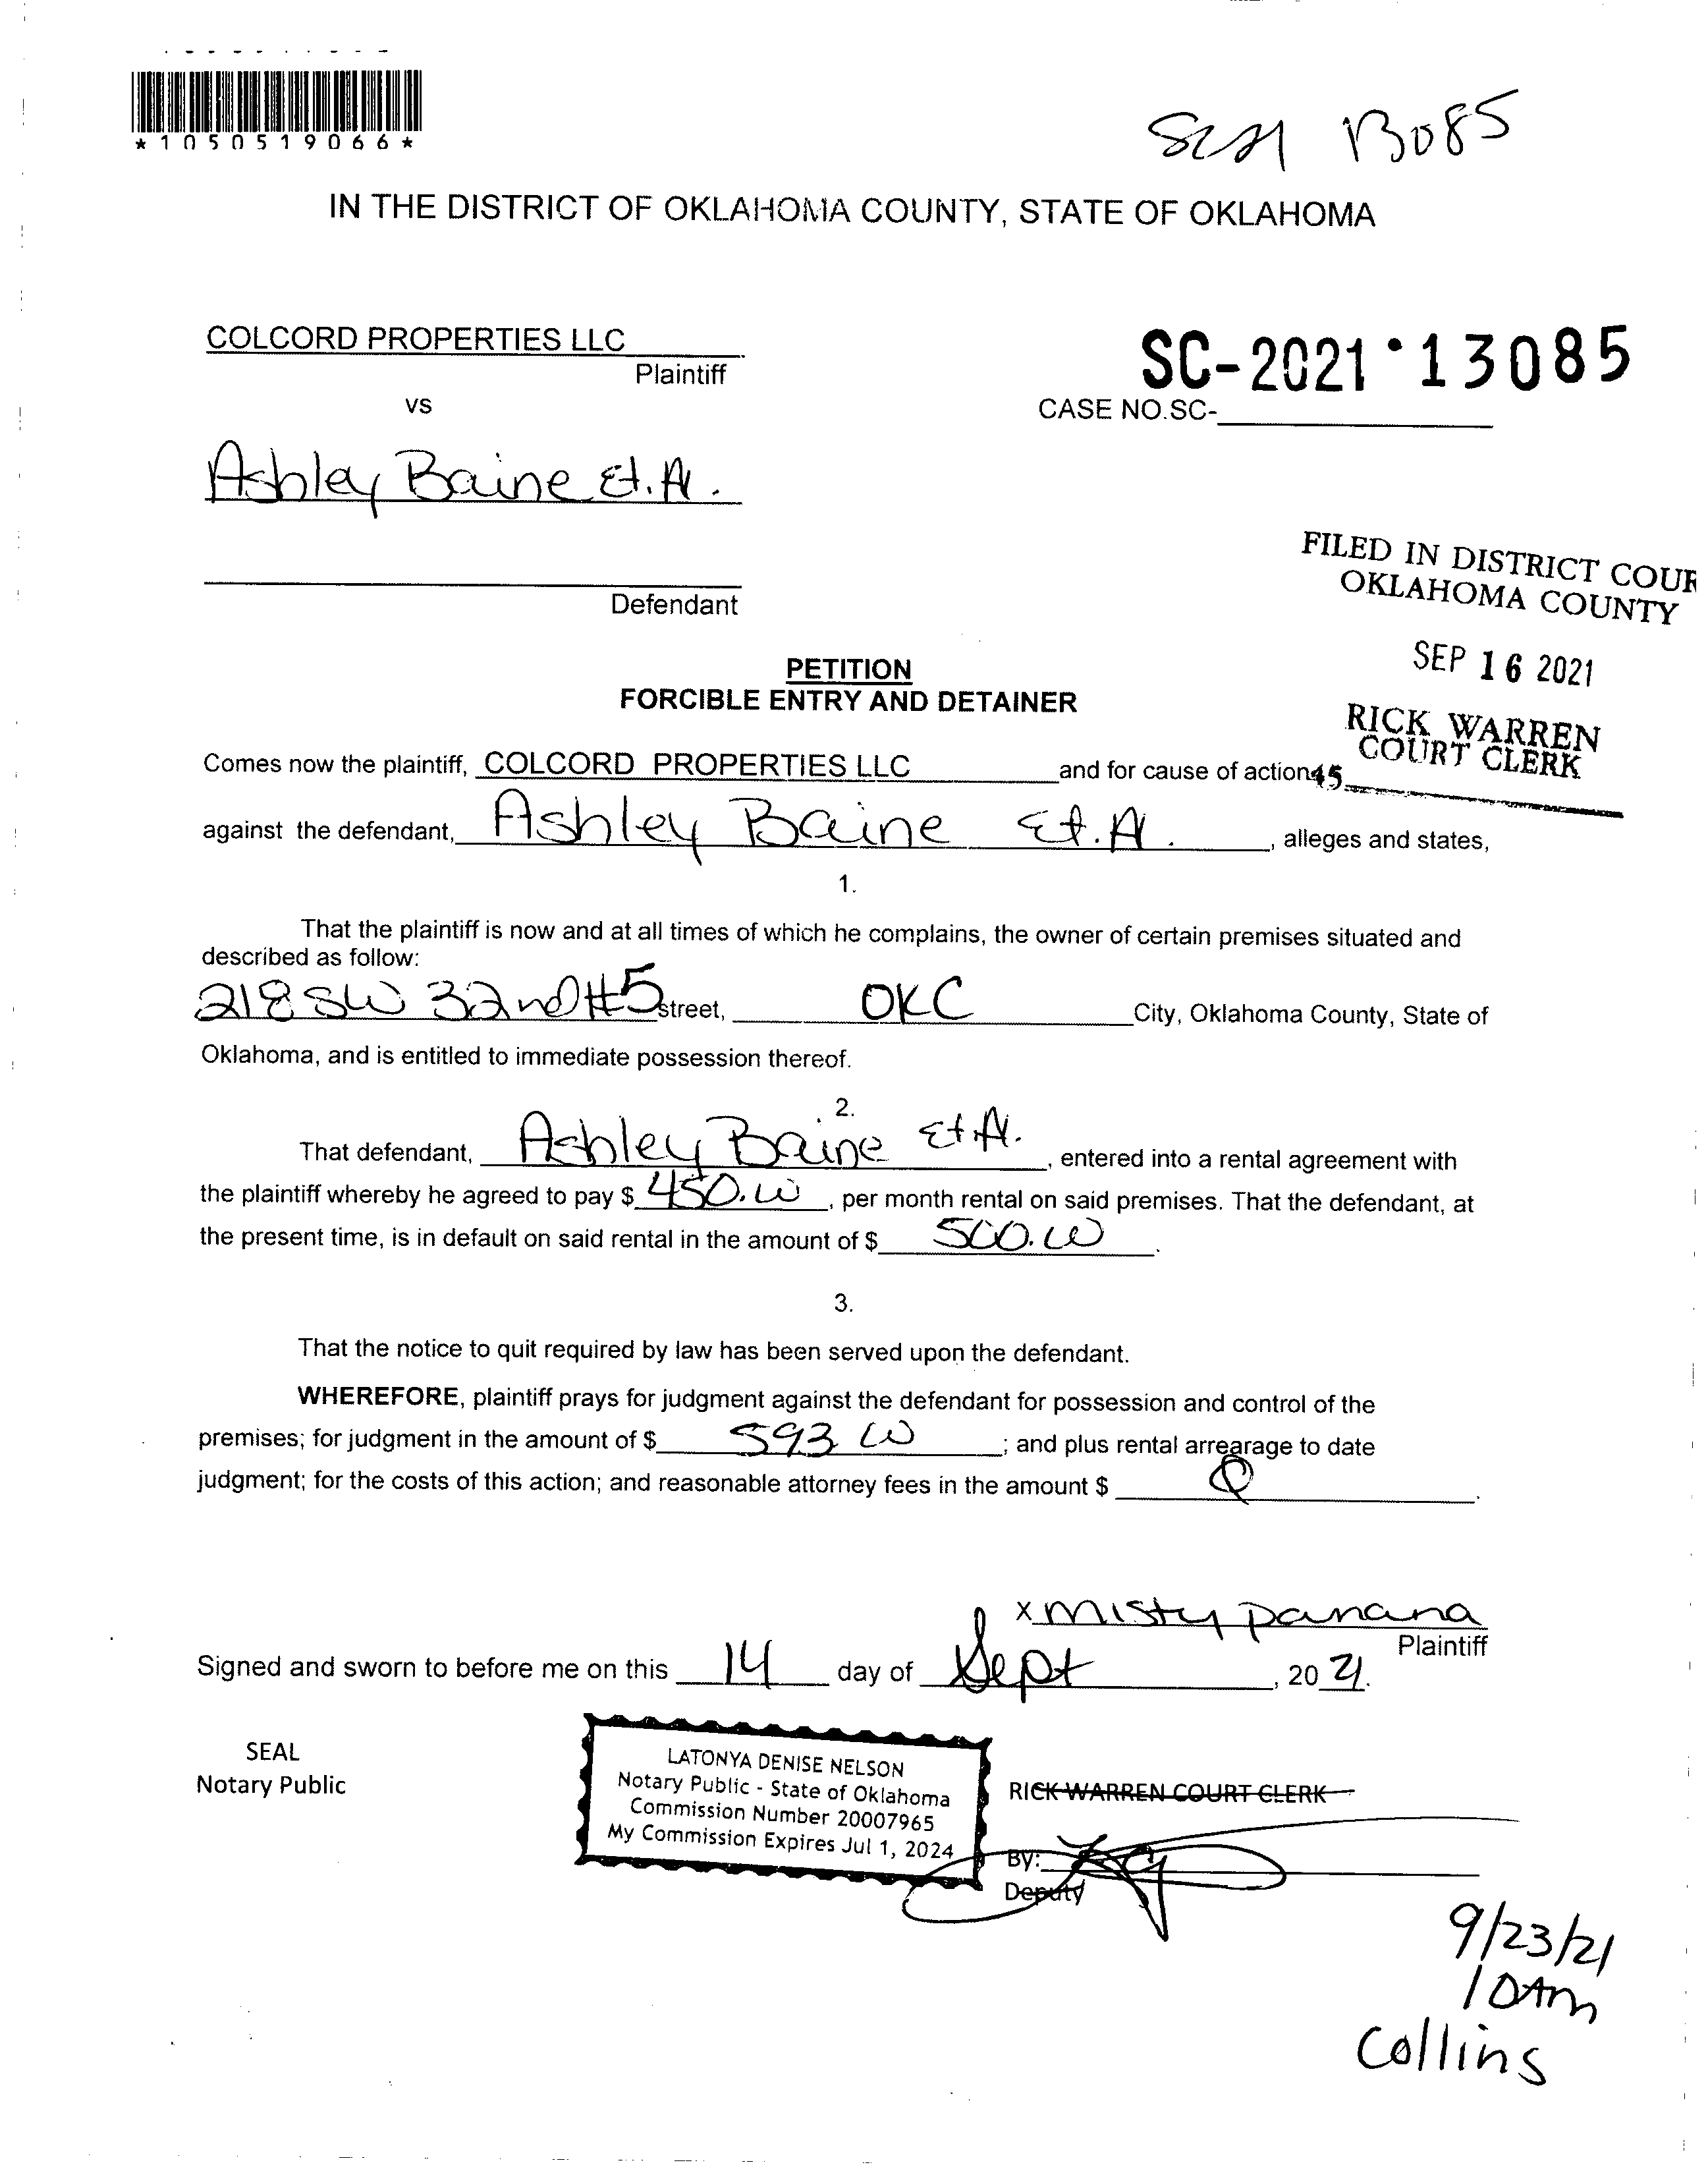 *1050519066*
SC21 13085
IN THE DISTRICT OF OKLAHOMA COUNTY, STATE OF OKLAHOMA
COLCORD PROPERTIES LLC
Plaintiff
vs
SC-2021 • 13085
CASE NO.SC-
Ashley Baine Et. Al.
Defendant
FILED IN DISTRICT COUR
OKLAHOMA COUNTY
SEP 16 2021
RICK WARREN
COURT CLERK
45
PETITION
FORCIBLE ENTRY AND DETAINER
Comes now the plaintiff, COLCORD PROPERTIES LLC and for cause of action
against the defendant, Ashley Baine Et. Al., alleges and states,
1.
That the plaintiff is now and at all times of which he complains, the owner of certain premises situated and
described as follow:
218 SW 32nd #5 street, OKC City, Oklahoma County, State of
Oklahoma, and is entitled to immediate possession thereof.
2.
That defendant, Ashley Baine Et Al., entered into a rental agreement with
the plaintiff whereby he agreed to pay $ 450.00, per month rental on said premises. That the defendant, at
the present time, is in default on said rental in the amount of $ 500.00.
3.
That the notice to quit required by law has been served upon the defendant.
WHEREFORE, plaintiff prays for judgment against the defendant for possession and control of the
premises; for judgment in the amount of $ 593 00; and plus rental arrearage to date
judgment; for the costs of this action; and reasonable attorney fees in the amount $ 0.
x Misty Panana
Plaintiff
Signed and sworn to before me on this 14 day of Sept, 20 21.
SEAL
Notary Public
LATONYA DENISE NELSON
Notary Public - State of Oklahoma
Commission Number 20007965
My Commission Expires Jul 1, 2024
RICK WARREN COURT CLERK
By:
Deputy
9/23/21
10am
Collins